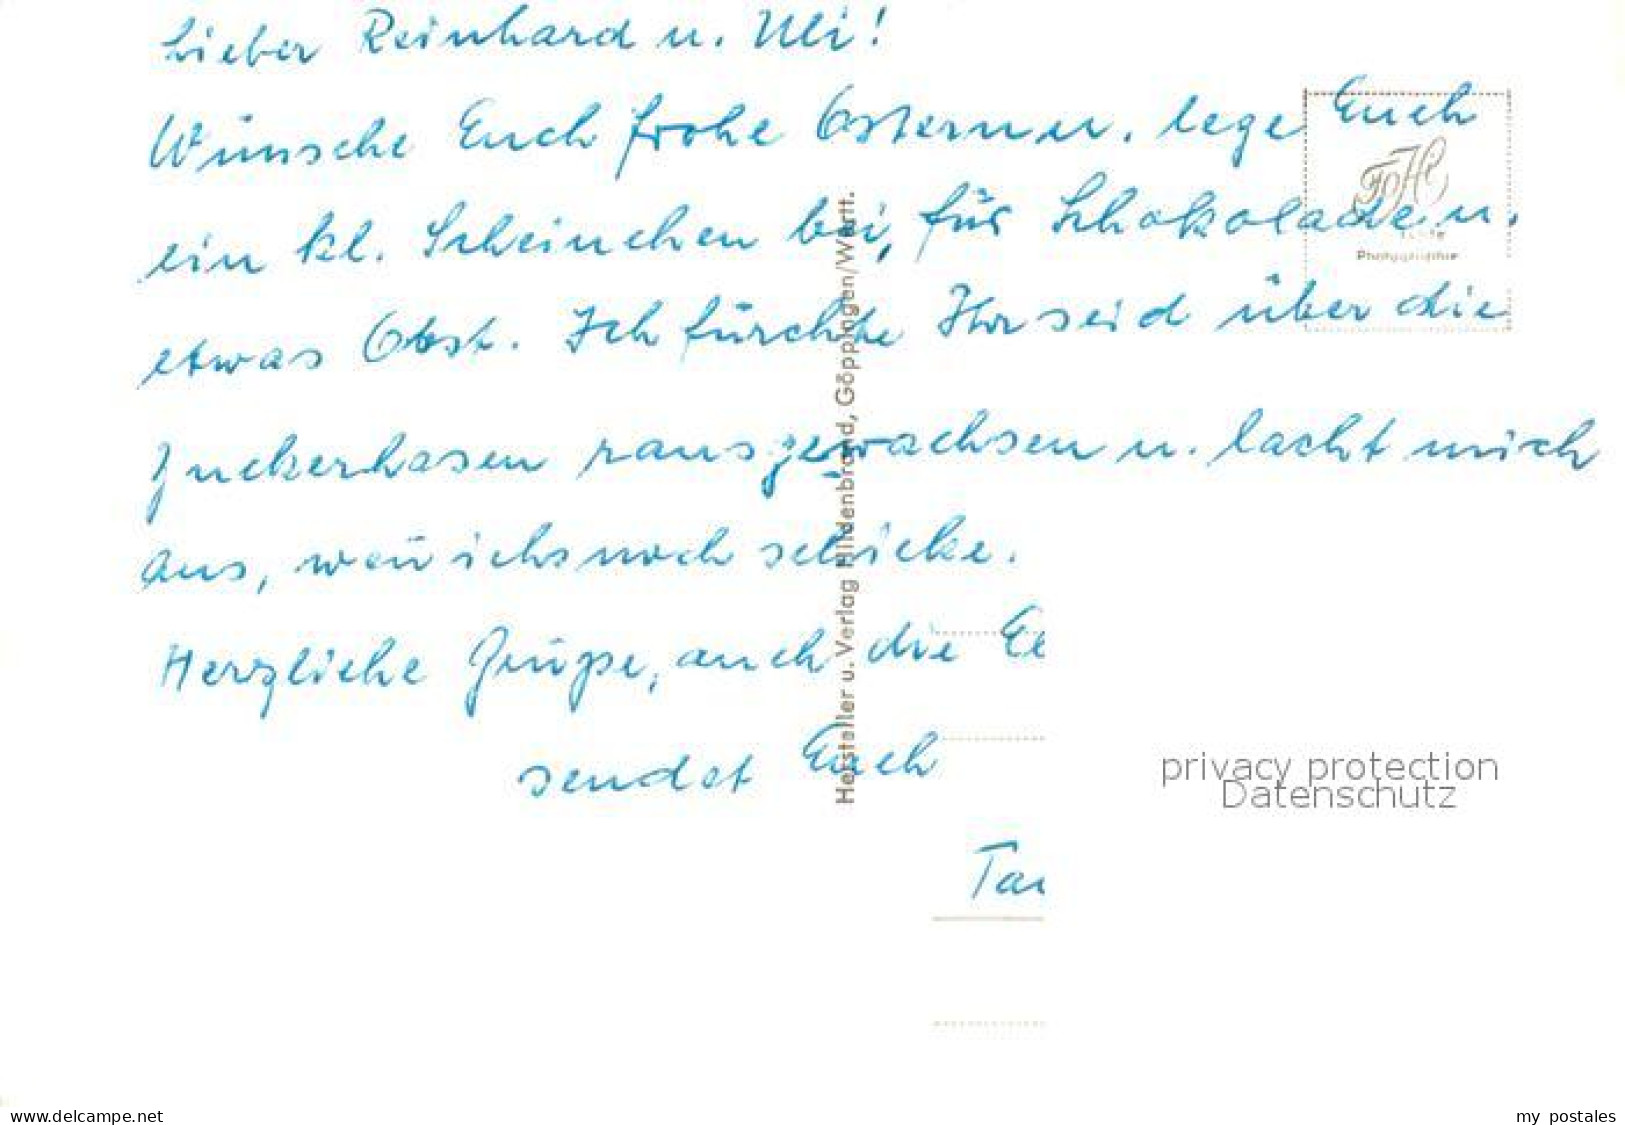 Lieber Reinhard u. Uli!
Wünsche Euch frohe Ostern u. lege Euch
ein kl. Scheinchen bei, für Schokolade u.
etwas Obst. Ich fürchte Ihr seid über die
Zuckerhasen rausgewachsen u. lacht mich
aus, weñ ichs noch schicke.
Herzliche Grüße, auch die
sendet Euch
Hersteller u. Verlag Hildenbrand, Göppingen/Württ.
privacy protection
Datenschutz
www.delcampe.net
my postales